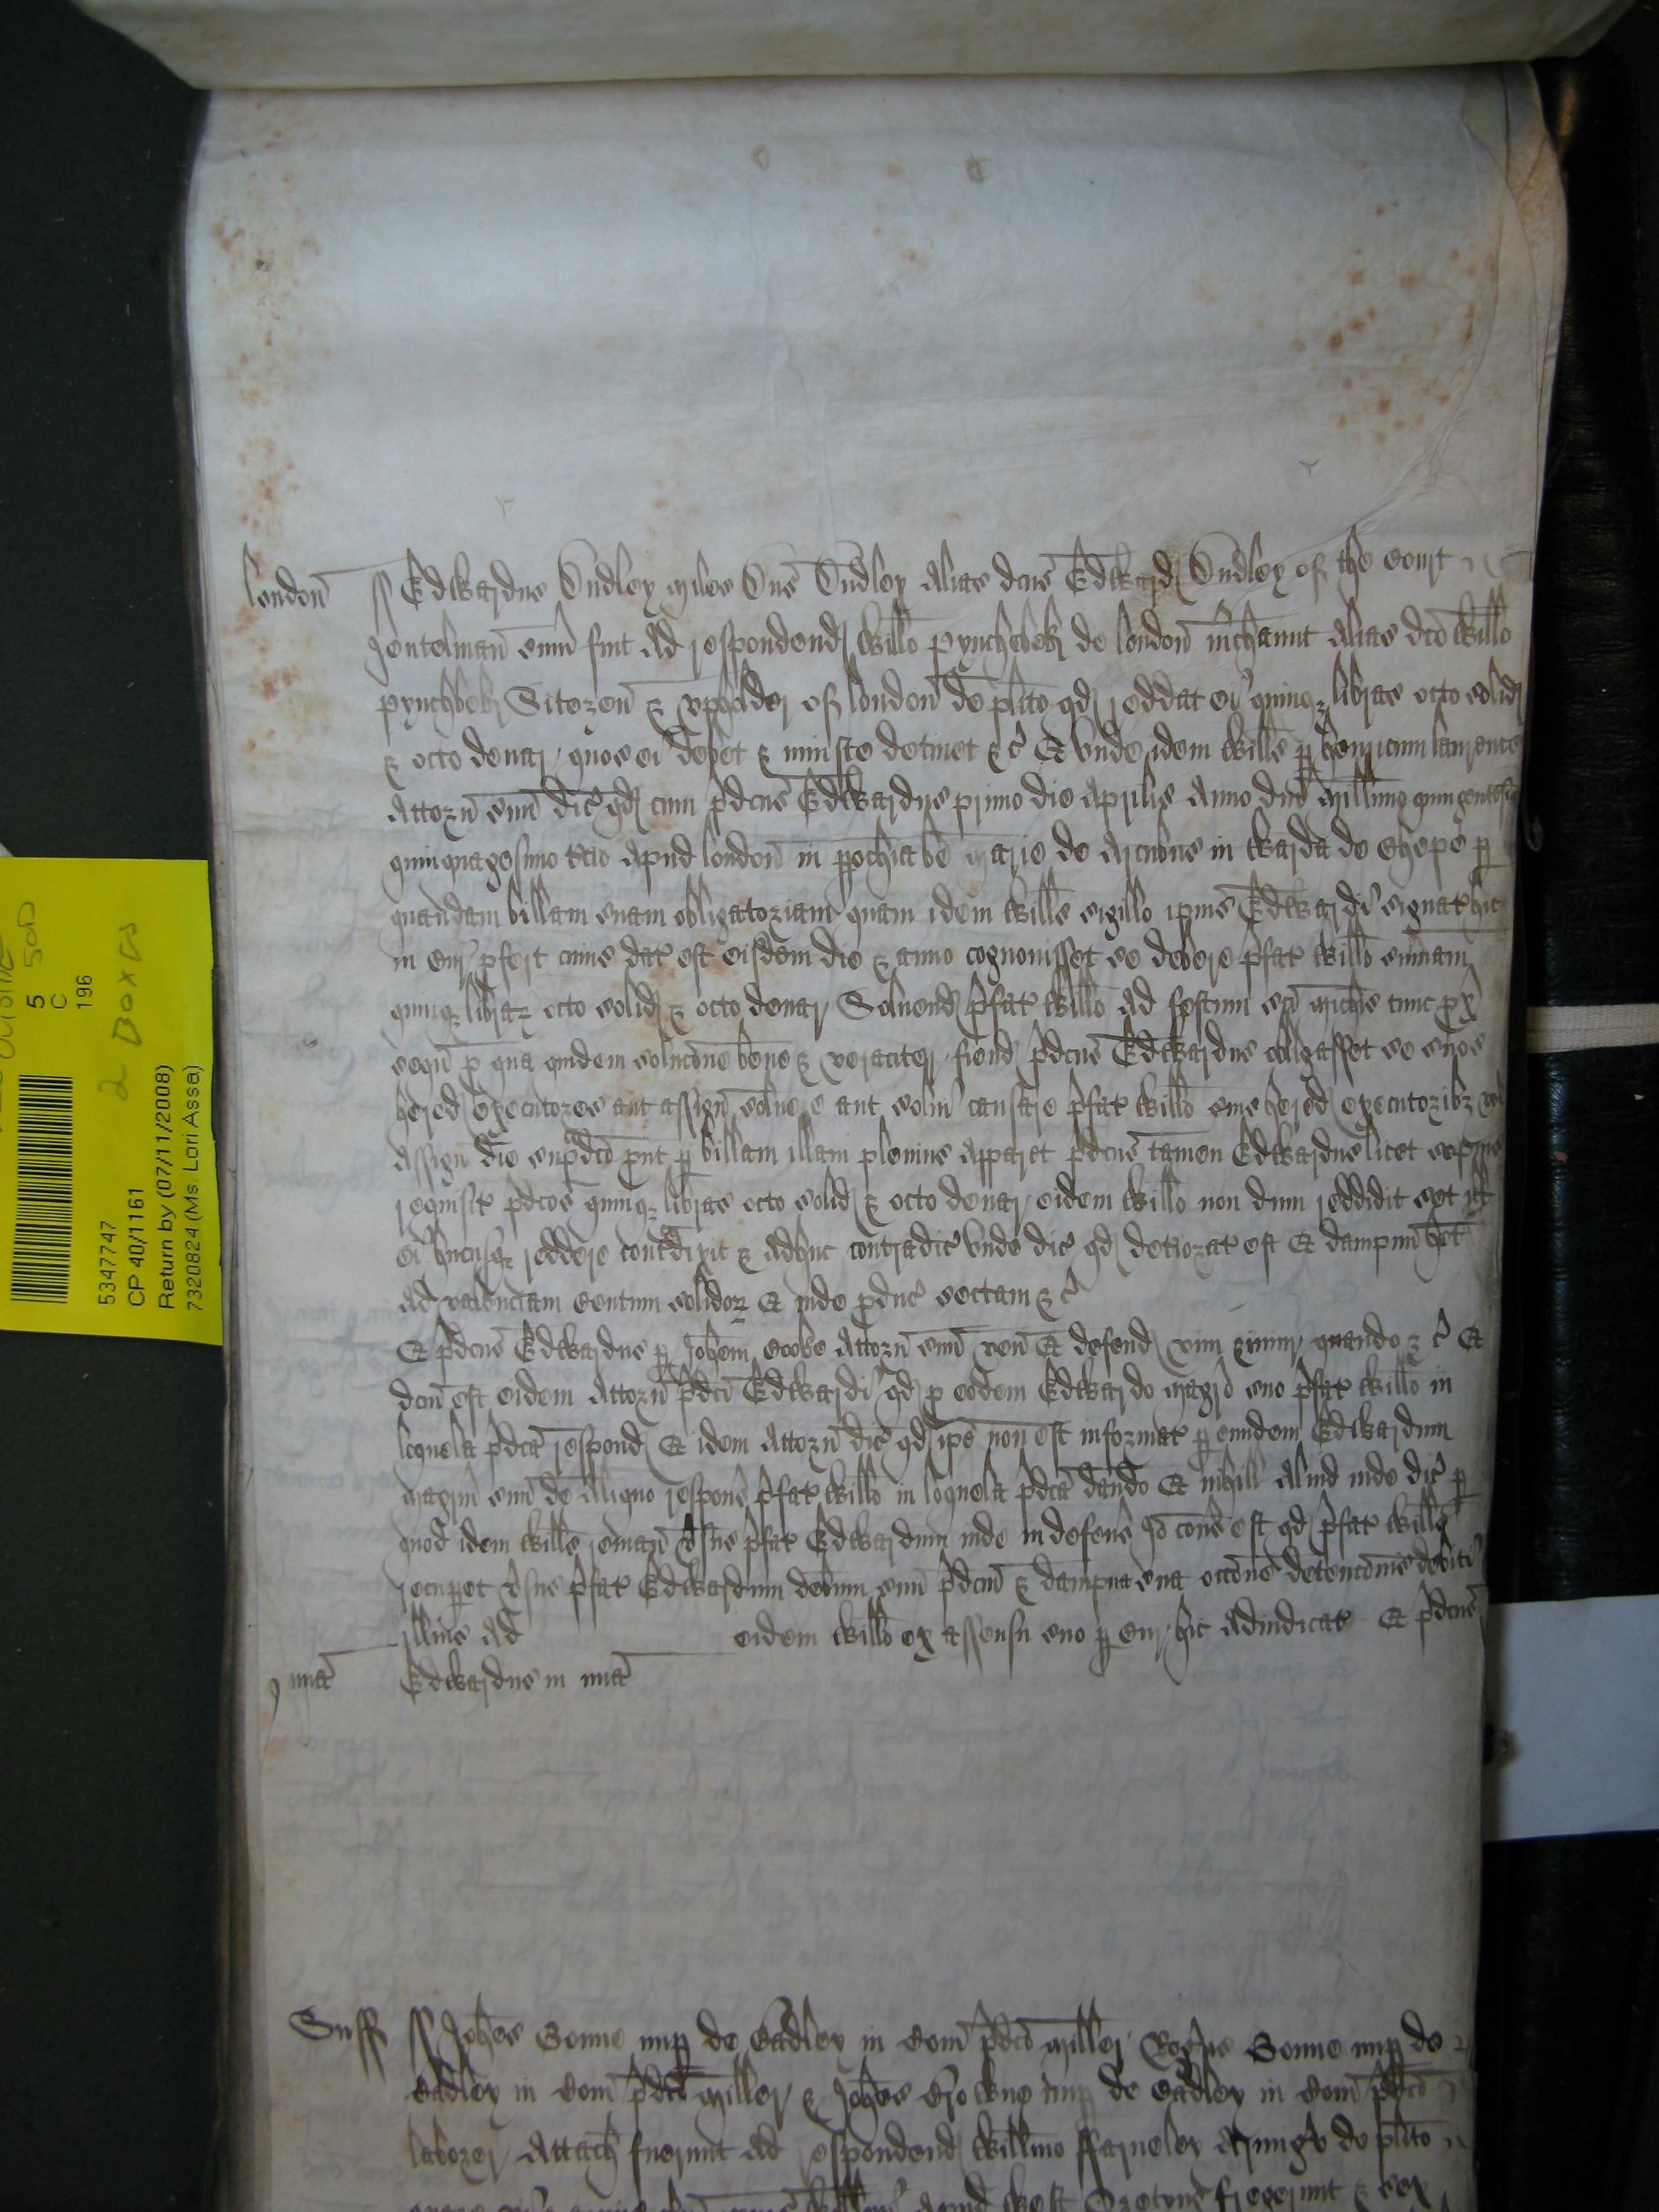 London̄ ss Edwardus Dudley miles Dn̄s Dudley alias dcūs Edward Dudley of the Court
Jentelman̄ sum̄ fuit ad respondend Willō Pynchebek de london̄ m̄chaunt alias dcō Willō
Pynchbek Citezen̄ & vpholder of london̄ de plito qd reddat ei quinqʒ libras octo solid
& octo denar quos ei debet & iniuste detinet &c̄ Et vnde idem Willūs p henricum laurence
Attorn̄ suū dic̄ qd cum p̄dcūs Edwardus primo die Aprilis Anno dn̄i millīmo quingentesīo
quinquagesimo apud london̄ in pochia bē marie de Arcubus in Warda de Chepe p
quandam billam suam obligatoriam quam idem Willūs sigillo ipīus Edwardi signat hic
in Cur p̄fert cuius dat est eisdem die & anno cognouisset se debere p̄fat Willō sum̄am
quinqʒ libraꝝ octo solid & octo denar Soluend p̄fat Willō ad festum scī Michīs tunc px̄
sequ p qua quidem soluc̄one bene & veraciter fiend p̄dcūs Edwardus obligasset se suos
hered executores aut assign̄ soluere aut solui causare p̄fat Willō suis hered executoribʒ vel
assign̄ dīo sup̄dcō put p billam illam plenius apparet p̄dcūs tamen Edwardus licet sepius
requisit p̄dcās quinqʒ libras octo solid & octo denar eidem Willō non dum reddidit set ill
ei hucusqʒ reddere cont̄dixit & adhuc contradic̄ vnde dic̄ qd deteriorat est Et dampnū h̄et
ad valenciam Centum solidoꝝ Et inde pduc̄ sectam &c̄
Et p̄dcūs Edwardus p Joh̄em Cooke Attorn̄ suū ven̄ Et defend vim & iniur quando &c̄ Et
dcm̄ est eidem Attorn̄ p̄dcī Edwardi qd p eodem Edwardo magr̄o suo p̄fat Willō in
loquela p̄dcā respond Et idem Attorn̄ dic̄ qd ip̄e non est informat p eundem Edwardum
magrm̄ suū de aliquo respons̄ p̄fat Willō in loquela p̄dcā dando Et nichill aliud inde dic̄ p
quod idem Willūs reman̄ v̄sus p̄fat Edwardum inde indefens̄ Iō cons̄ est qd p̄fat Willūs
recuperet v̄sus p̄fat Edwardum debitum suū p̄dcm̄ & dampna sua occōne detencōnis debiti
illius ad eidem Willō ex assensu suo p Cur hic adiudicat Et p̄dcūs
mīa Edwardus in mīa
Suff ss Joh̄es Sonne nup de Eadley in Com̄ p̄dcō miller Roḡus Sonne nup de
Eadley in Com̄ p̄dcō miller & Joh̄es nup de Eadley in Com̄ p̄dcō
laborer attach fuerunt ad respondend Willīmo ffarneley Armigō de plito
fregerunt & sex
5
C 500
196
2 BOXES
5347747
CP 40/1161
Return by (07/11/2008)
7320824 (Ms. Lori Assa)